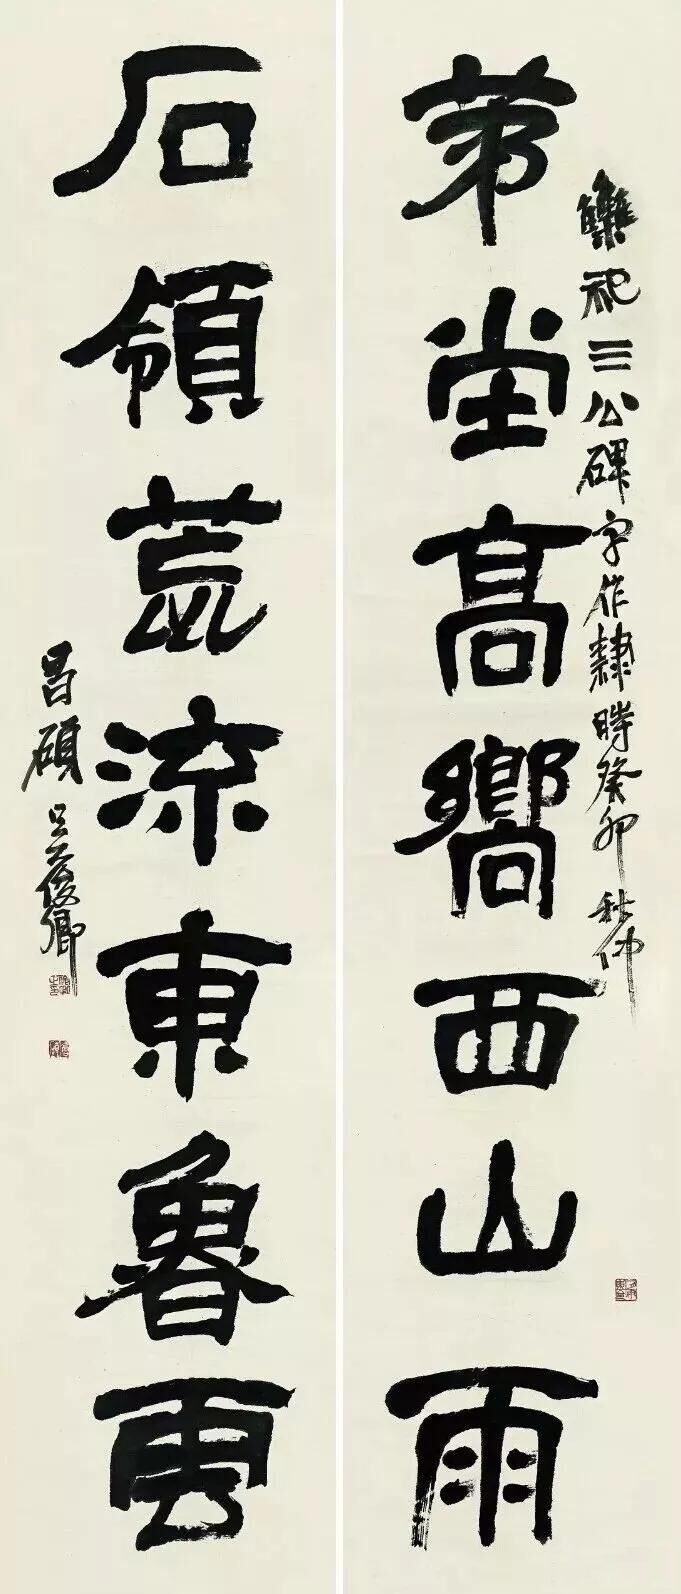 集祀三公碑字作隸時癸卯秋仲
茀堂高嚮西山雨
石領荒流東魯雲
昌碩吳俊卿